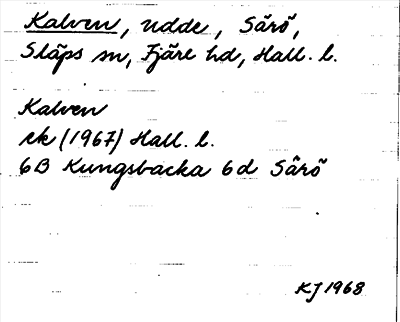 Kalven, udde, Särö,
Släps sn, Fjäre hd, Hall. l.
Kalven
ek (1967) Hall. l.
6B Kungsbacka 6d Särö
KJ 1968